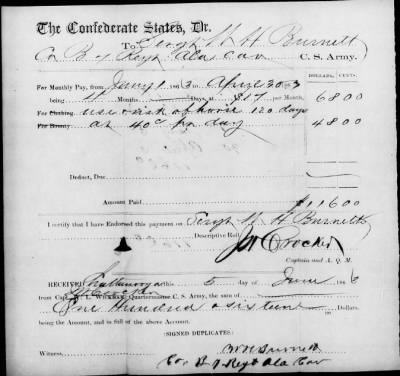 The Confederate States, Dr.
To Sergt W H Burnett
Co B 7 Regt Ala Cav C. S. Army.
DOLLARS, CENTS.
For Monthly Pay, from Jany 1 1863 to April 30 3
being 4 Months Days, at $17 per Month, 68 00
For Clothing use & risk of horse 120 days
For Bounty at 40c per day 48 00
Deduct, Due
Amount Paid $116 00
I certify that I have Endorsed this payment on Sergt W H Burnett's
Descriptive Roll. Crocker
Captain and A. Q. M.
RECEIVED Chattanooga this 5 day of June 186
Crocker
from Capt. W. L. WICKHAM, Quartermaster C. S. Army, the sum of
One Hundred & sixteen Dollars,
being the amount, and in full of the above Account.
(SIGNED DUPLICATES)
Witness, W H Burnett
Co B 7 Regt Ala Cav